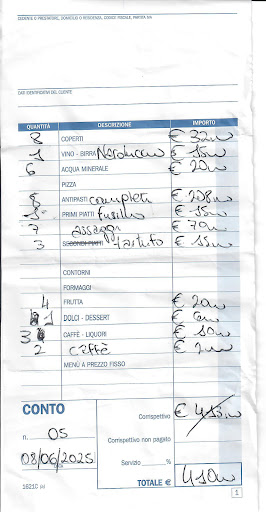 CEDENTE O PRESTATORE, DOMICILIO O RESIDENZA, CODICE FISCALE, PARTITA IVA
DATI IDENTIFICATIVI DEL CLIENTE
QUANTITÀ DESCRIZIONE IMPORTO
8 COPERTI € 32,00
1 VINO - BIRRA € 15,00
6 ACQUA MINERALE € 20,00
PIZZA
8 ANTIPASTI completi € 208,00
1 PRIMI PIATTI fusillo € 15,00
7 assaggi € 70,00
3 SECONDI PIATTI tartufo € 15,00
CONTORNI
FORMAGGI
4 FRUTTA € 20,00
1 DOLCI - DESSERT € 6,00
3 CAFFÈ - LIQUORI € 10,00
2 caffè €
MENÙ A PREZZO FISSO
CONTO Corrispettivo €
n. 05 Corrispettivo non pagato
08/06/2025 Servizio %
1621C TOTALE € 410,00
1